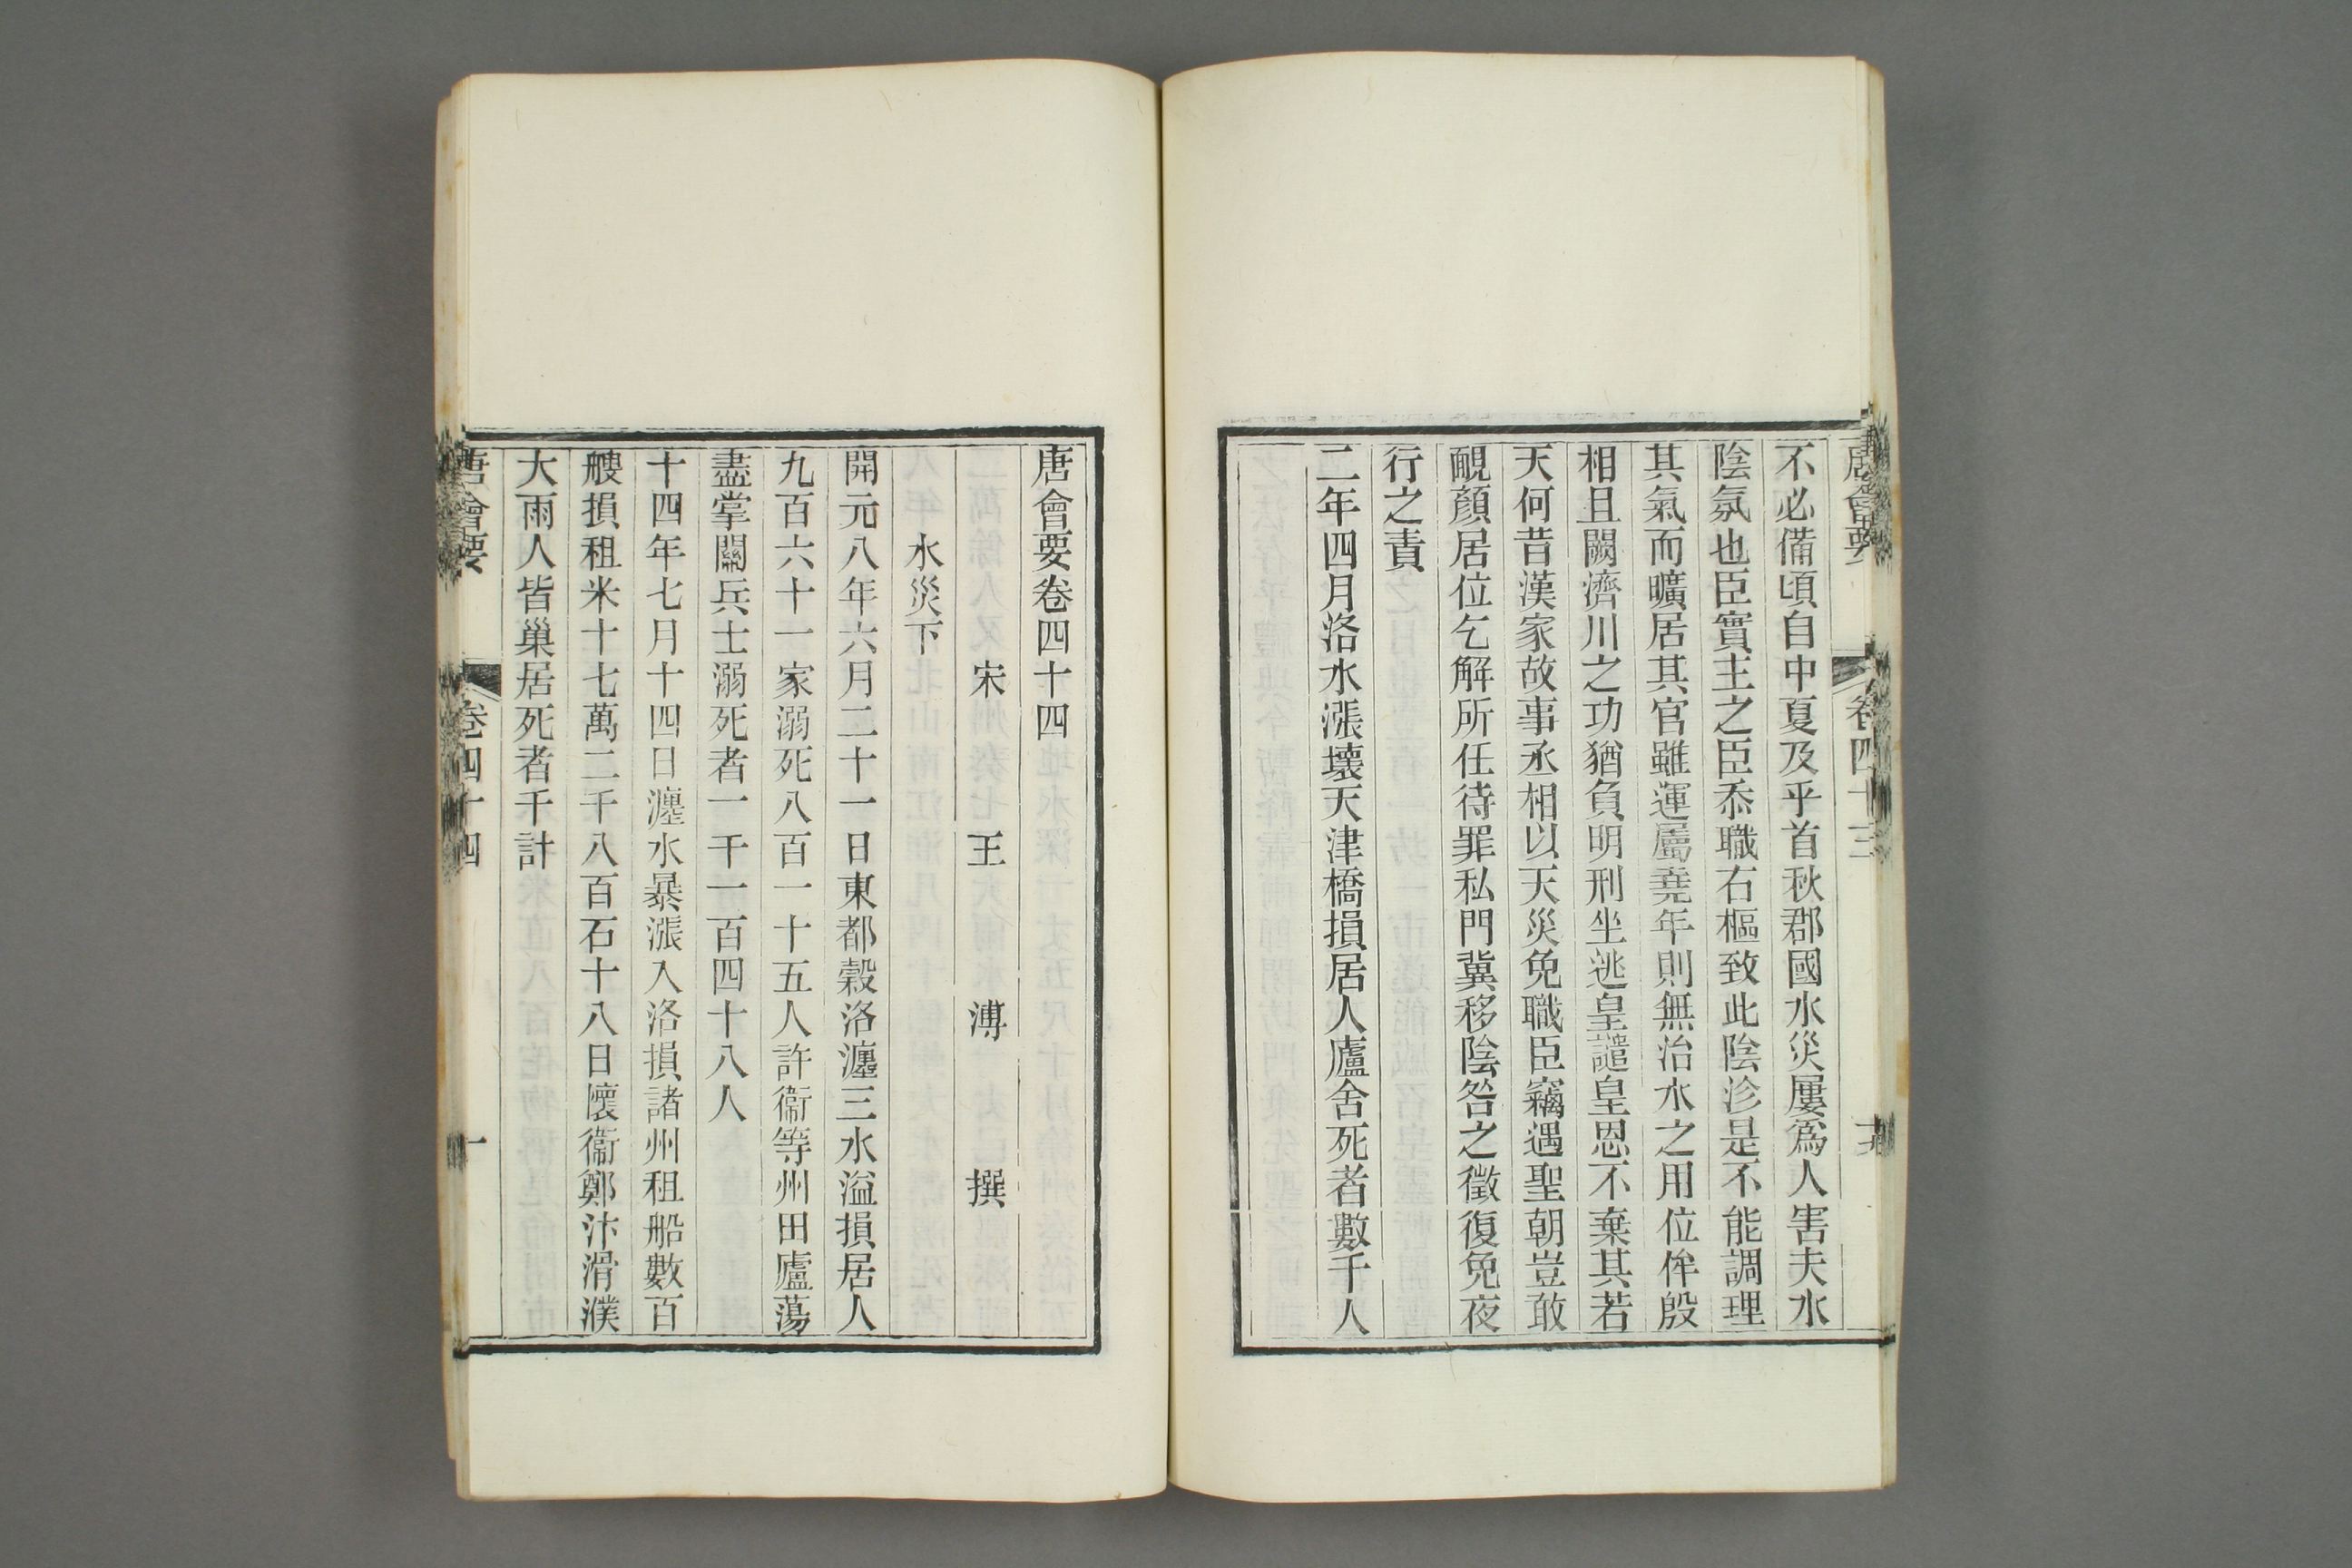 唐會要
卷四十三
不必備頃自中夏及乎首秋郡國水災屢爲人害夫水
陰氛也臣實主之臣忝職右樞致此陰沴是不能調理
其氣而曠居其官雖運屬堯年則無治水之用位侔殷
相且闕濟川之功猶負明刑坐逃皇譴皇恩不棄其若
天何昔漢家故事丞相以天災免職臣竊遇聖朝豈敢
靦顏居位乞解所任待罪私門冀移陰咎之徵復免夜
行之責
二年四月洛水漲壞天津橋損居人廬舍死者數千人
唐會要卷四十四
宋 王 溥 撰
水災下
開元八年六月二十一日東都穀洛瀍三水溢損居人
九百六十一家溺死八百一十五人許衞等州田廬蕩
盡掌關兵士溺死者一千一百四十八人
十四年七月十四日瀍水暴漲入洛損諸州租船數百
艘損租米十七萬二千八百石十八日懷衞鄭汴滑濮
大雨人皆巢居死者千計
唐會要
卷四十四
一